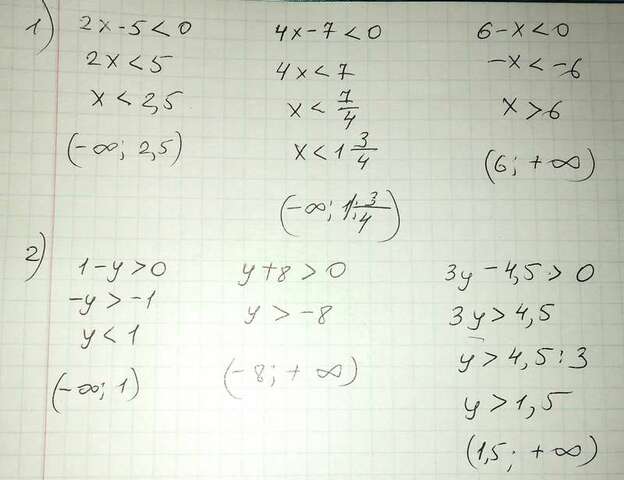 1)
2x - 5 < 0
2x < 5
x < 2,5
(-∞; 2,5)
4x - 7 < 0
4x < 7
x < 7/4
x < 1 3/4
(-∞; 1 3/4)
6 - x < 0
-x < -6
x > 6
(6; +∞)
2)
1 - y > 0
-y > -1
y < 1
(-∞; 1)
y + 8 > 0
y > -8
(-8; +∞)
3y - 4,5 > 0
3y > 4,5
y > 4,5 : 3
y > 1,5
(1,5; +∞)